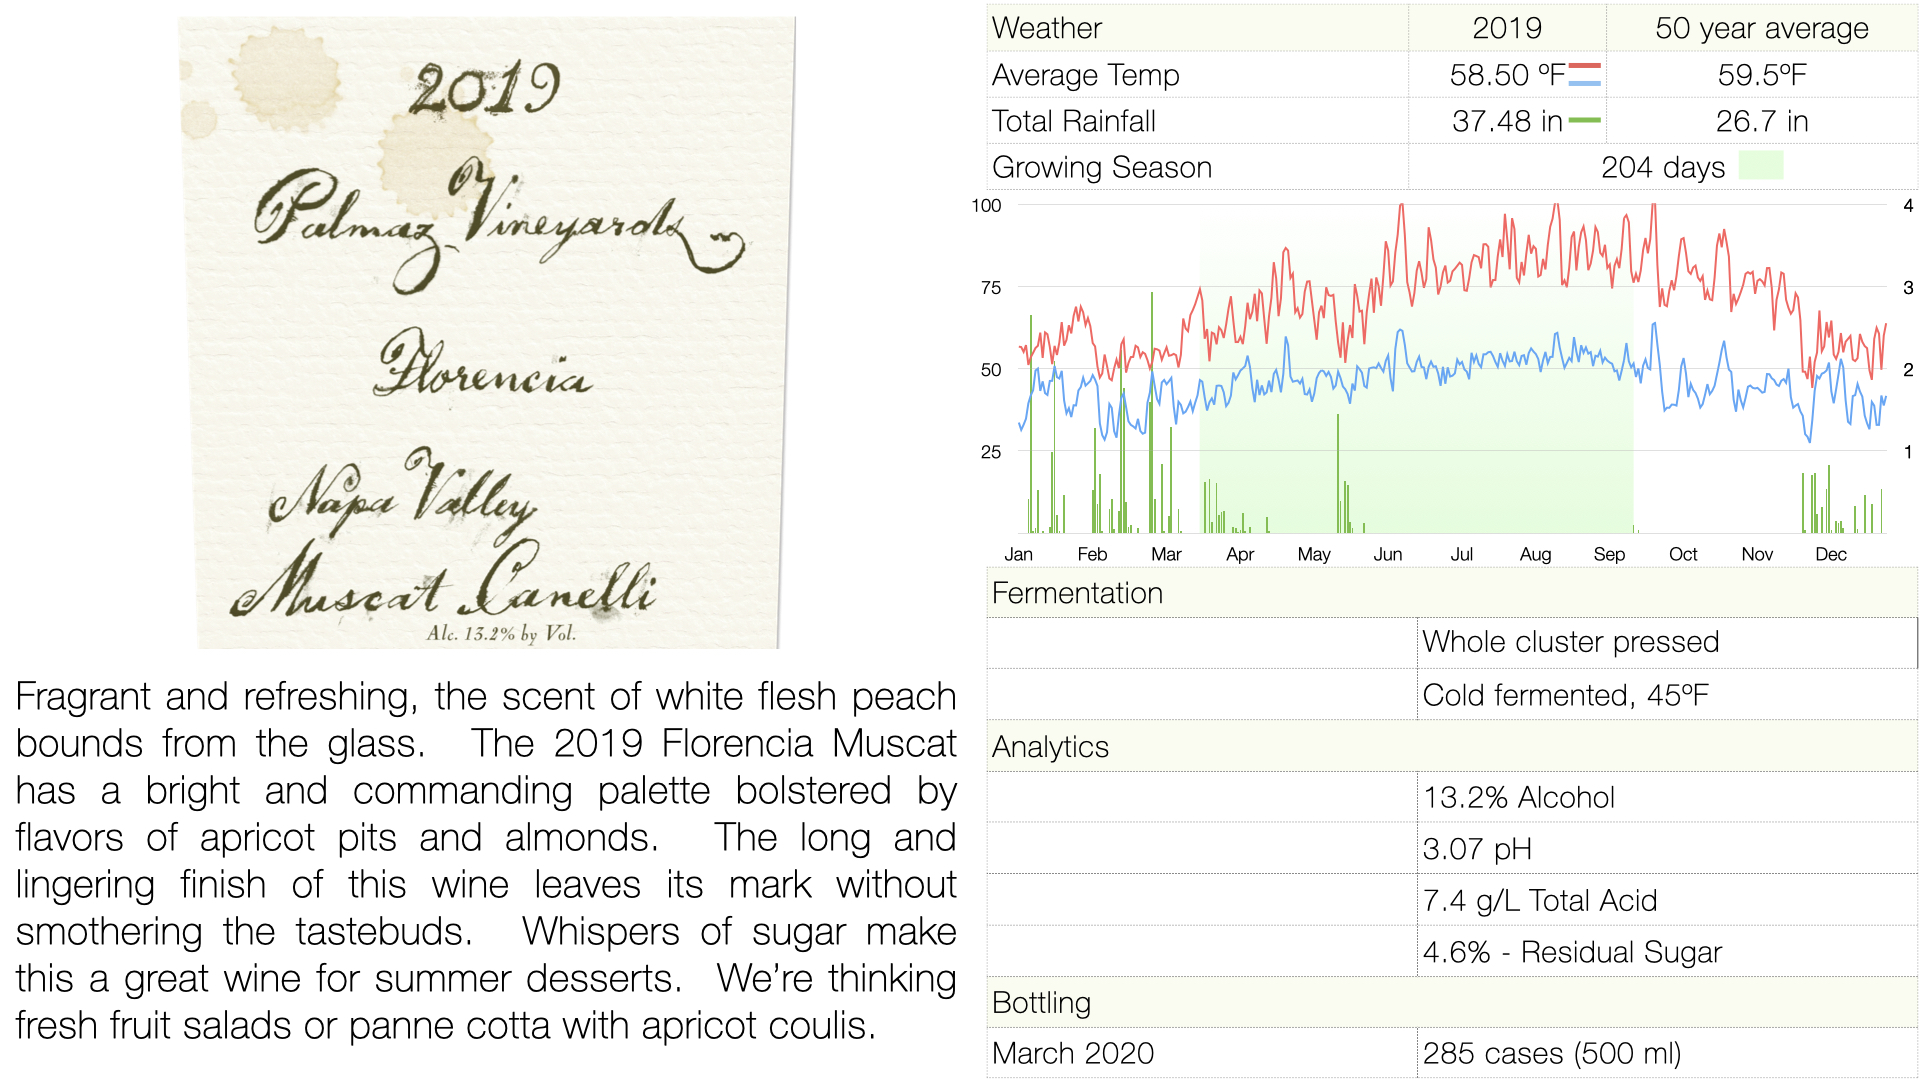 2019
Palmaz Vineyards
Florencia
Napa Valley
Muscat Canelli
Alc. 13.2% by Vol.
Fragrant and refreshing, the scent of white flesh peach
bounds from the glass. The 2019 Florencia Muscat
has a bright and commanding palette bolstered by
flavors of apricot pits and almonds. The long and
lingering finish of this wine leaves its mark without
smothering the tastebuds. Whispers of sugar make
this a great wine for summer desserts. We're thinking
fresh fruit salads or panne cotta with apricot coulis.
Weather 2019 50 year average
Average Temp 58.50 ºF 59.5ºF
Total Rainfall 37.48 in 26.7 in
Growing Season 204 days
100 4
75 3
50 2
25 1
Jan Feb Mar Apr May Jun Jul Aug Sep Oct Nov Dec
Fermentation
Whole cluster pressed
Cold fermented, 45ºF
Analytics
13.2% Alcohol
3.07 pH
7.4 g/L Total Acid
4.6% - Residual Sugar
Bottling
March 2020 285 cases (500 ml)